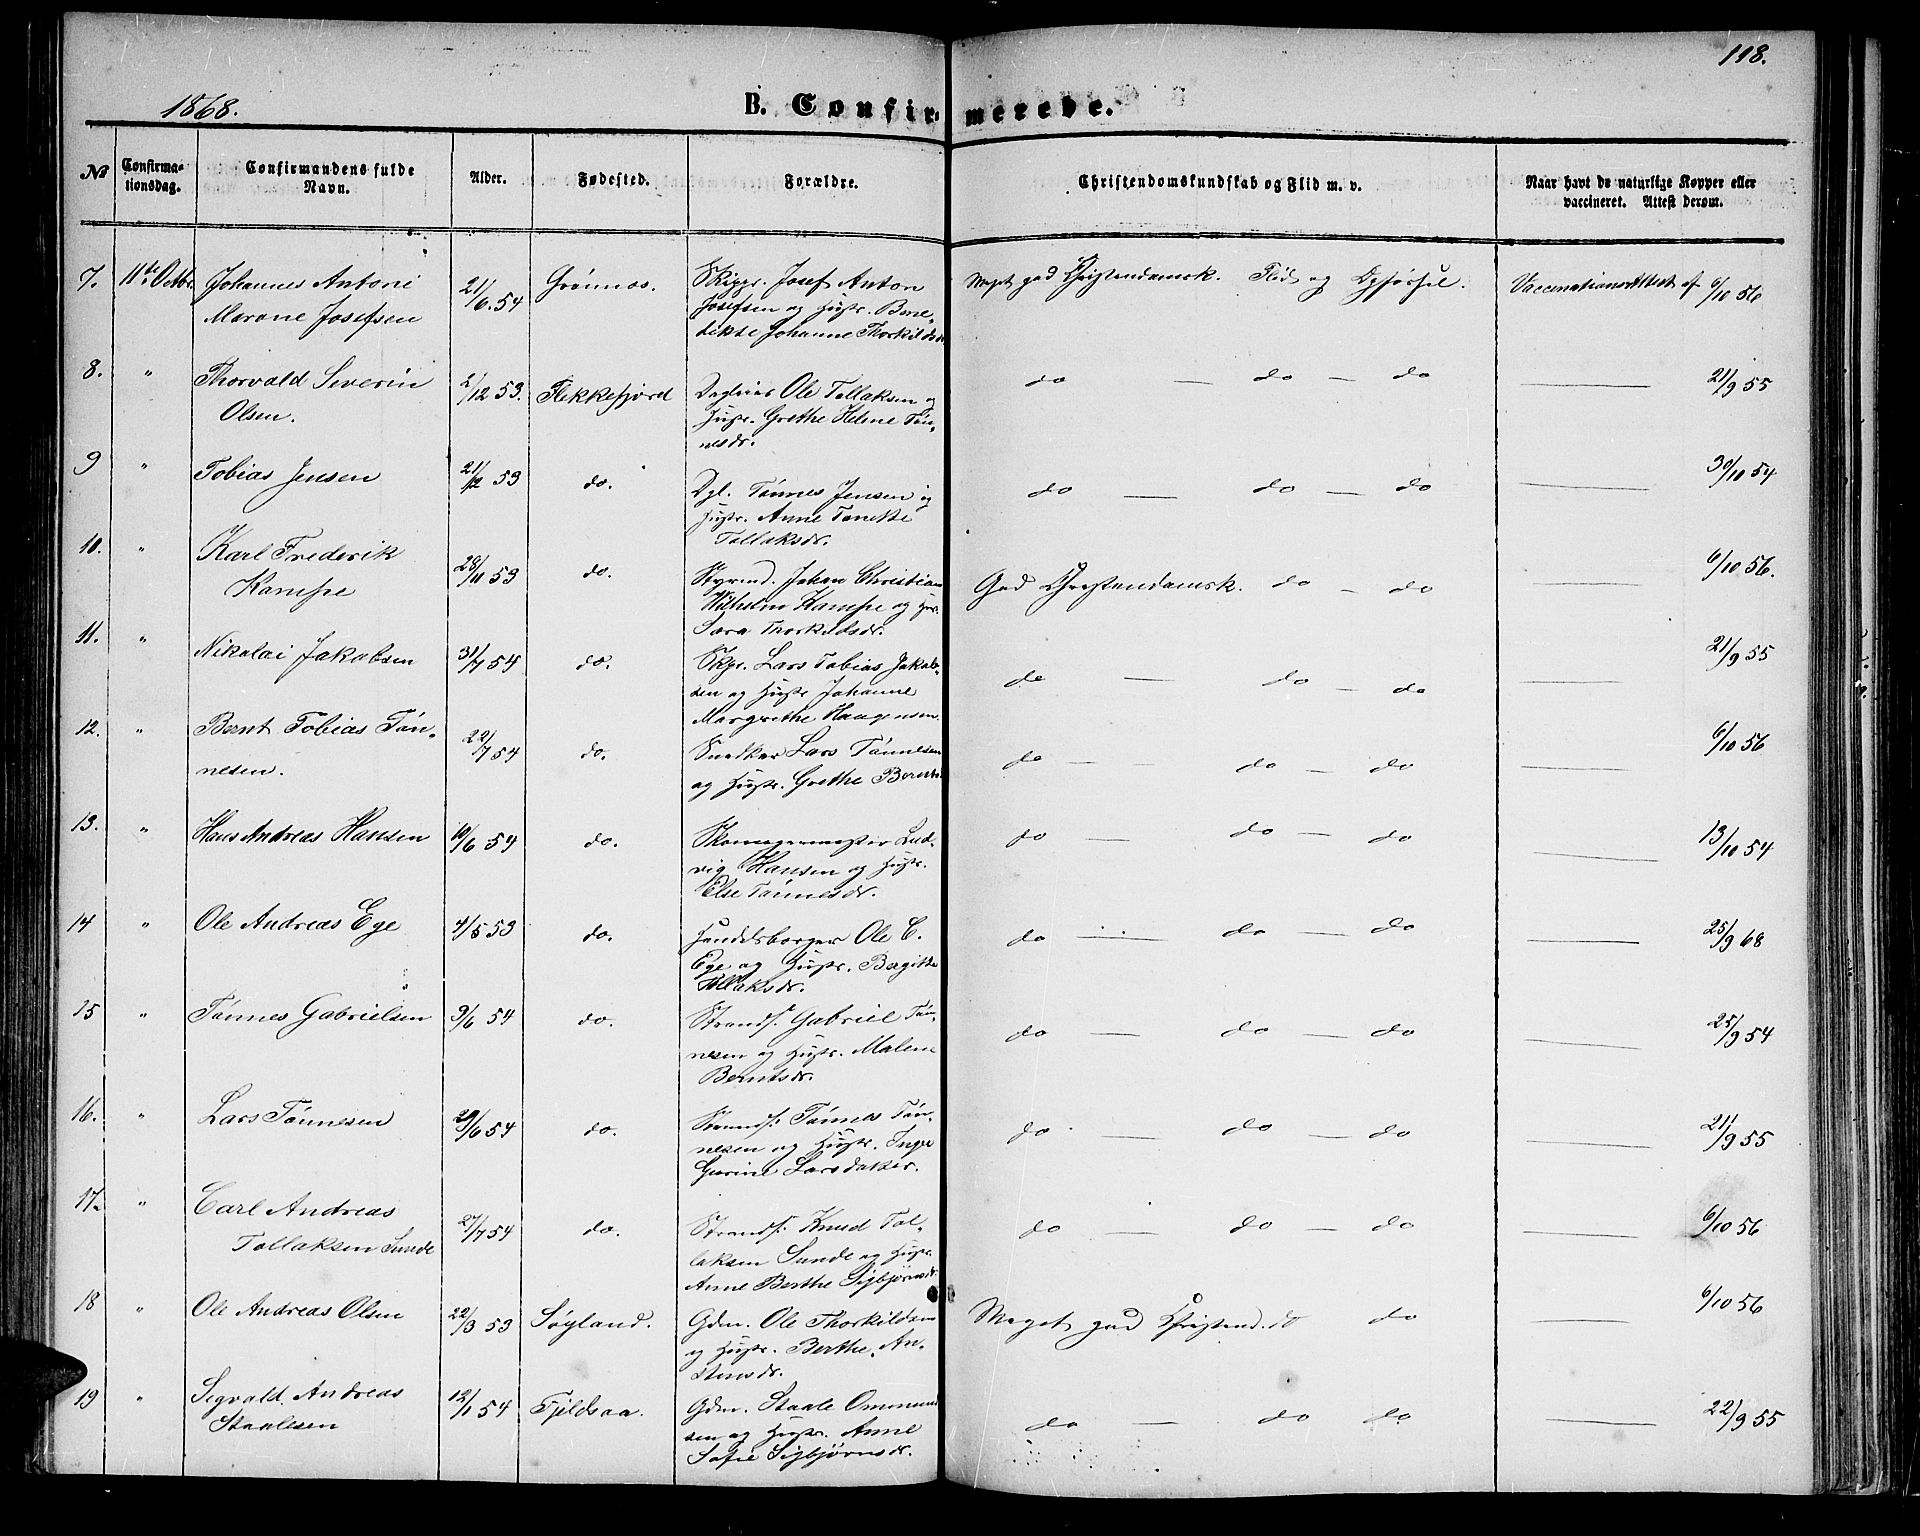 118.
1868.
B. Confirmerede.
No
Confirmationsdag.
Confirmandens fulde Navn.
Alder.
Fødested.
Forældre.
Christendomskundskab og Flid m. v.
Naar havt de naturlige Kopper eller vaccineret. Attest derom.
7. 11te Octbr. Johannes Antoni 21/6.54 Grønnos. Skipr. Josef Anton Meget god Christendomsk. Flid og Opførsel. Vaccinationsattest af 6/10 56
Marone Josefsen Josefsen og Hustr. Bene-
dikte Johanne Thorkildsdr.
8. " Thorvald Severin 2/12 53. Flekkefjord Dagleier Ole Tollaksen og do — do — do — 21/9 55
Olsen. Hustr. Grethe Helene Tøn-
nesdr.
9 " Tobias Jensen 21/12 53 do. Dgl. Tønnes Jensen og do — do — do — 30/10 54
Hustr. Anne Tonette
Tollaksdr.
10. " Karl Frederik 28/11 53 do. Styrmd. Johan Christian God Christendomsk. do — do — 6/10 56.
Kampe Wilhelm Kampe og Hus.
Sara Thorkildsdr.
11. " Nikolai Jakobsen 31/7 54 do. Skpr. Lars Tobias Jakob- do — do — do — 21/9 55
sen og Hustr Johanne
Margrethe Haagensen
12. " Bernt Tobias Tøn- 22/7 54 do. Snedker Lars Tønnesen do — do — do — 6/10 56
nesen. og Hustr. Grethe Berntsd.
13. " Hans Andreas Hansen 10/6 54 do. Skomagermester Lud- do — do — do — 13/10 54
vig Hansen og Hustr.
Else Tønnesdr.
14 " Ole Andreas Ege 4/5 53 do. Handelsborger Ole E. do — do — do — 25/9 68
Ege og Hustr. Bergitte
Tollaksdr.
15 " Tønnes Gabrielsen 9/6 54 do. Strands. Gabriel Tøn- do — do — do — 25/9 54
nesen og Hustr. Malene
Berntsdr.
16. " Lars Tønnesen 29/6 54 do. Strands. Tønnes Tøn- do — do — do — 21/9 55
nesen og Hustr. Inge
Gurine Larsdatter.
17. " Carl Andreas 27/7 54 do. Strands. Knud Tol- do — do — do — 6/10 56
Tollaksen Sunde laksen Sunde og Hustr.
Anne Berthe Sigbjørnsdr.
18 " Ole Andreas Olsen 22/3 53 Søyland. Gdm. Ole Thorkildsen Meget god Christend. do do — 6/10 56
og Hustr. Berthe An-
stensdr.
19 " Segvald Andreas 12/1 54 Fjeldsaa. Gdm. Staale Ommund do — do do — 22/9 55
Staalesen sen og Hustr. Anne
Sofie Sigbjørnsdr.